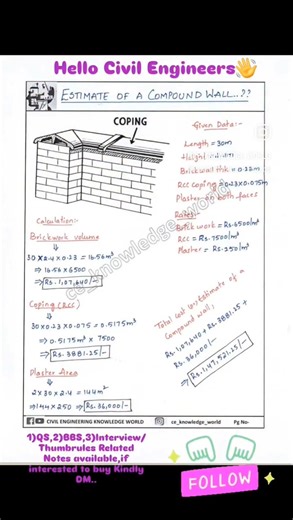 Hello Civil Engineers👋
ESTIMATE OF A COMPOUND WALL..??
COPING
Given Data:-
Length = 30m
Height
Brickwall thk = 0.23m
RCC coping = 0.23x0.075m
Plaster on both faces
Rates:-
Brick work = Rs.6500/m³
RCC = Rs.7500/m³
Plaster = Rs.250/m²
Calculation:-
Brickwork volume
30 x 2.4 x 0.23 = 16.56m³
⇒ 16.56 x 6500
⇒ Rs.1,07,640/-
Coping (RCC)
30 x 0.23 x 0.075 = 0.5175m³
⇒ 0.5175m³ x 7500
⇒ Rs.3881.25/-
Plaster Area
⇒ 2 x 30 x 2.4 = 144m²
⇒ 144 x 250 ⇒ Rs.36,000/-
Total cost or Estimate of compound wall,
= Rs.1,07,640 + Rs.3881.25 +
Rs.36,000/-
⇒ Rs.1,47,521.25/-
ce_knowledge_world
CIVIL ENGINEERING KNOWLEDGE WORLD
ce_knowledge_world
Pg No-
1)QS,2)BBS,3)Interview/
Thumbrules Related
Notes available,if
interested to buy Kindly
DM..
FOLLOW